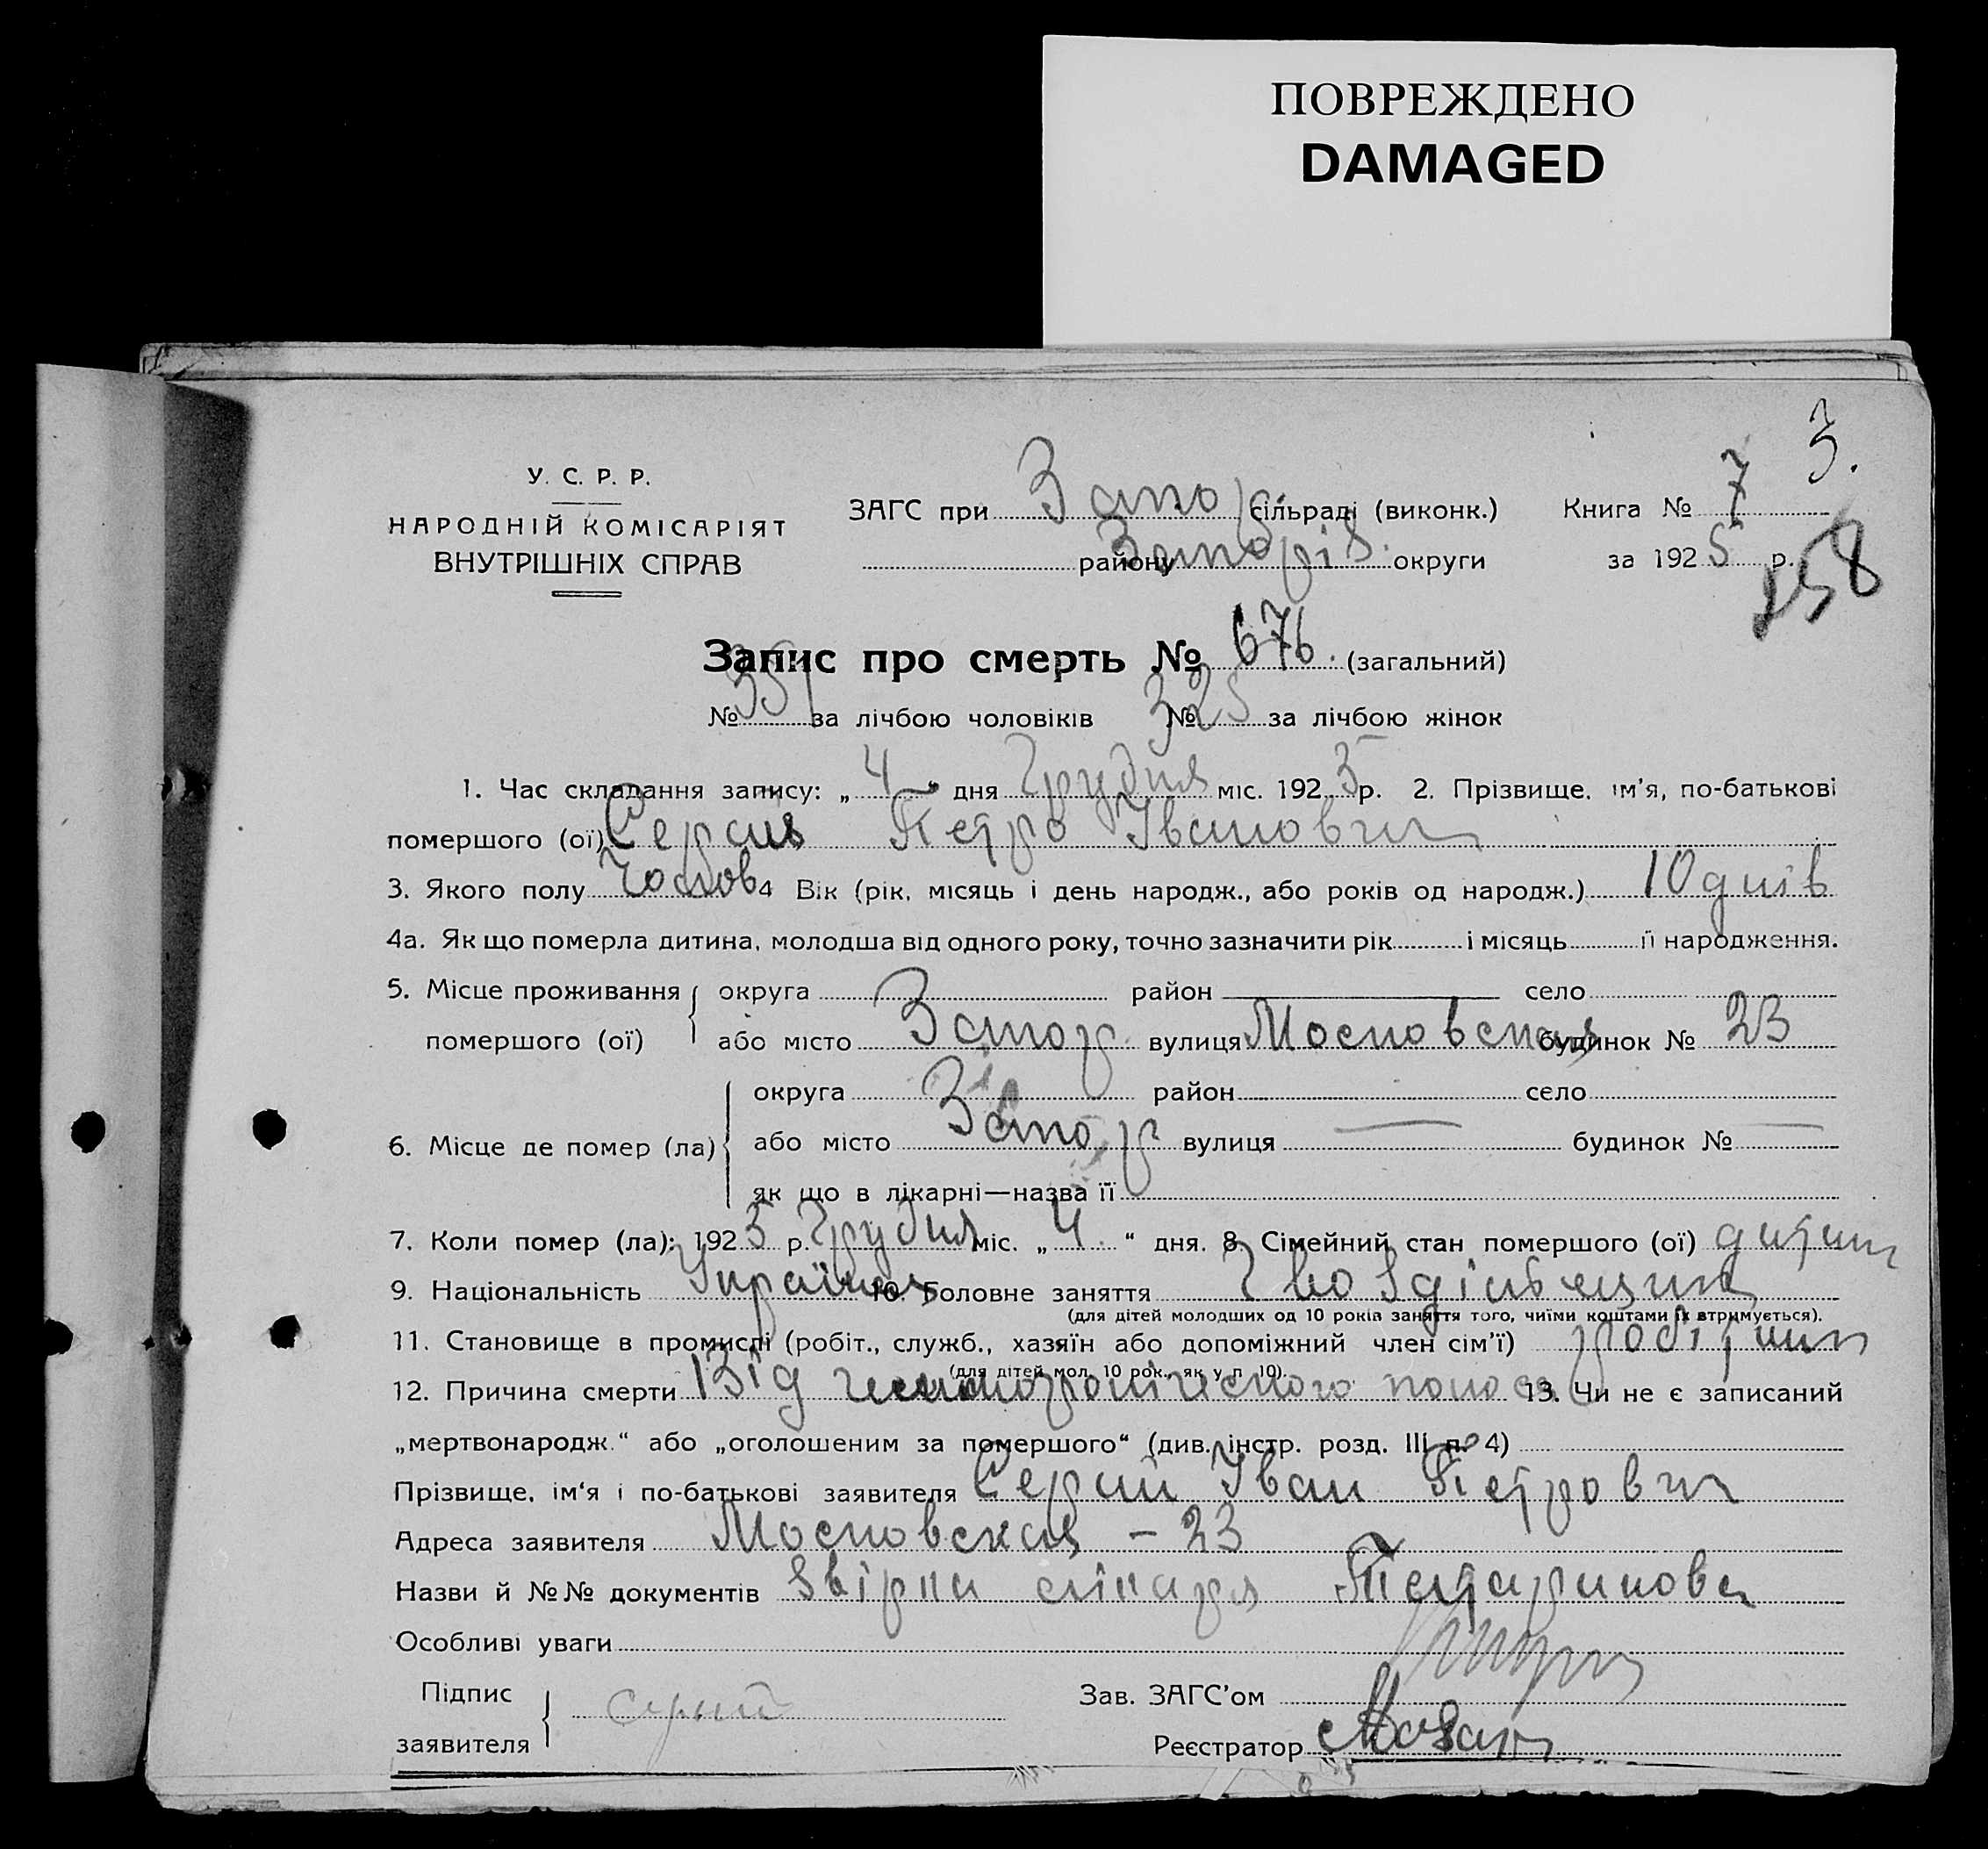 ПОВРЕЖДЕНО
DAMAGED
3.
У. С. Р. Р.
НАРОДНІЙ КОМІСАРІЯТ
ВНУТРІШНІХ СПРАВ
ЗАГС при Запор сільраді (виконк.) Книга № 7
району Запоріз. округи за 1925 р.
258
Запис про смерть № 676. (загальний)
№ 351 за лічбою чоловіків № 325 за лічбою жінок
1. Час складання запису: „ 4 “ дня Грудня міс. 1925 р. 2. Прізвище, ім'я, по-батькові
помершого (ої) Петро Іванович
3. Якого полу Чолов 4 Вік (рік, місяць і день народж., або років од народж.) 10 днів
4а. Як що померла дитина, молодша від одного року, точно зазначити рік і місяць її народження.
5. Місце проживання округа район село
помершого (ої) або місто Запор. вулиця Московская будинок № 23
округа район село
6. Місце де помер (ла) або місто Запор вулиця — будинок № —
як що в лікарні—назва її
7. Коли помер (ла): 1925 р. Грудня міс. „ 4 “ дня. 8. Сімейний стан помершого (ої) дитин
9. Національність 10. Головне заняття Гвоздільщик
(для дітей молодших од 10 років заняття того, чиїми коштами їх втримується).
11. Становище в промислі (робіт., служб., хазяїн або допоміжний член сім'ї) робітник
(для дітей мол. 10 рок., як у п. 10).
12. Причина смерти Від поноса 13. Чи не є записаний
„мертвонародж.“ або „оголошеним за помершого“ (див. інстр. розд. III п. 4)
Прізвище, ім'я і по-батькові заявителя Серий Іван Петрович
Адреса заявителя Московская – 23
Назви й №№ документів лікаря
Особливі уваги
Підпис Зав. ЗАГС'ом
заявителя Серый
Реєстратор